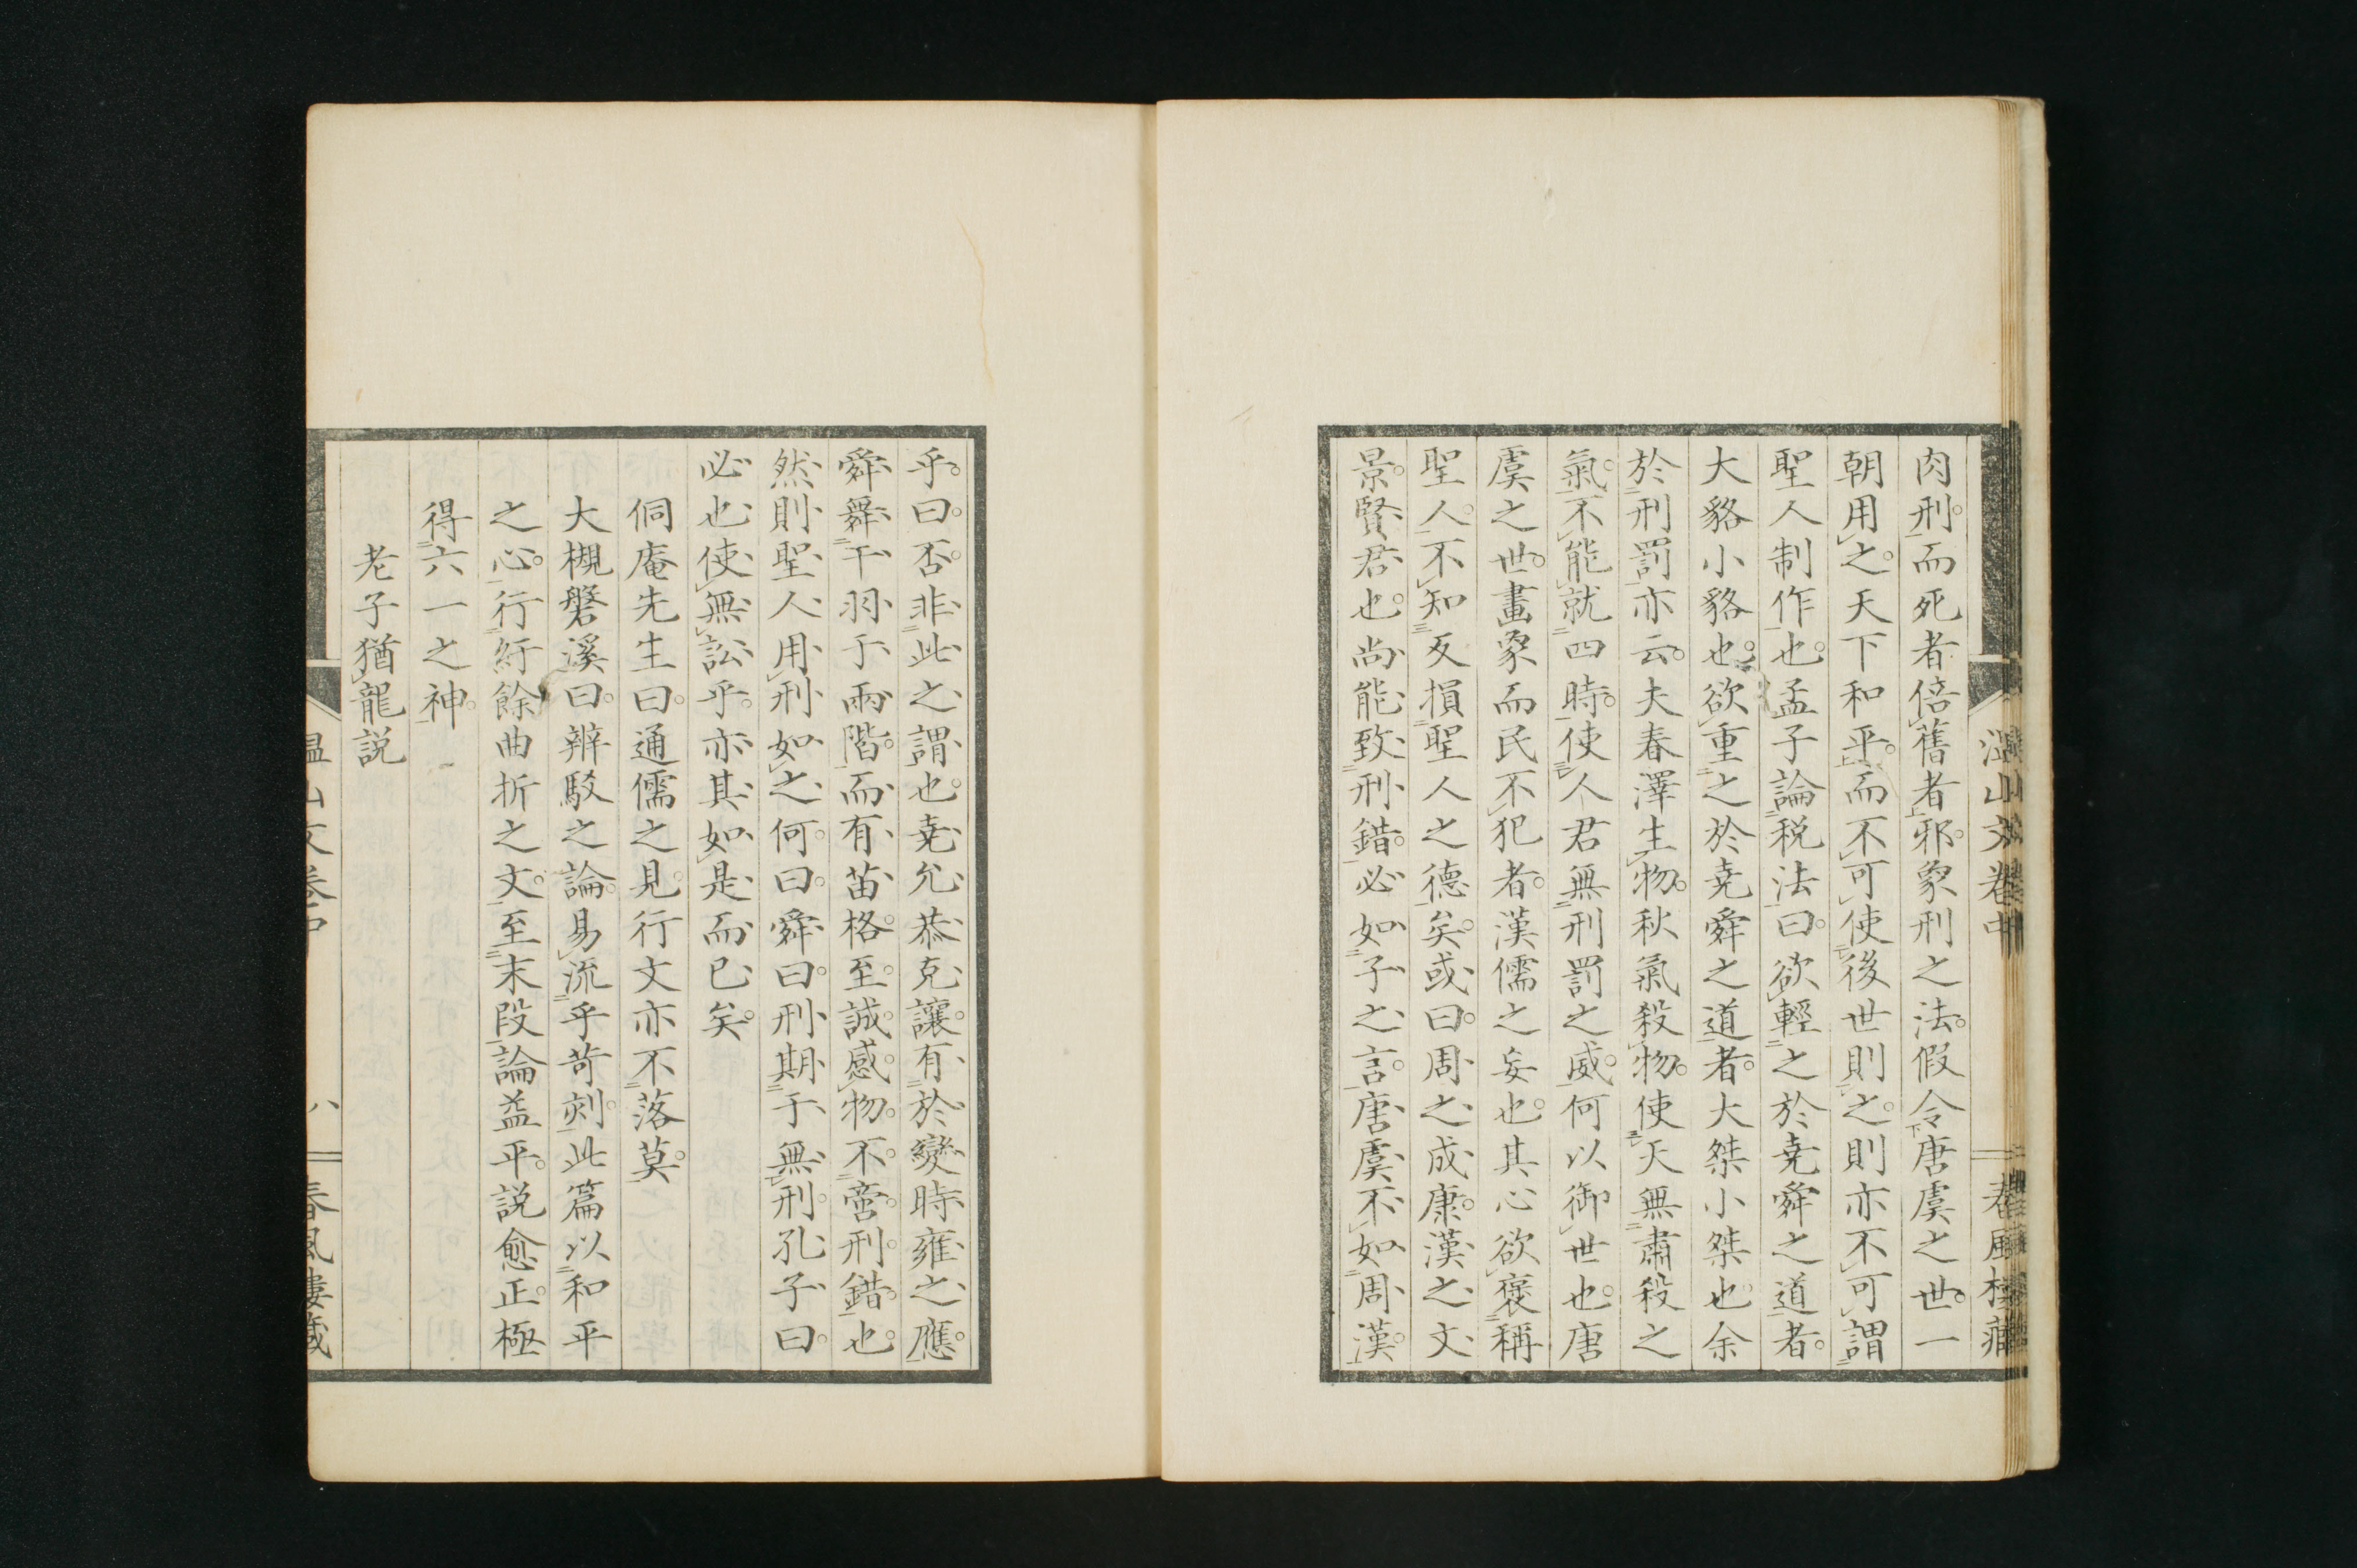 肉刑而死者倍舊者邪象刑之法假令唐虞之世一
朝用之天下和平而不可使後世則之則亦不可謂
聖人制作也孟子論税法曰欲輕之於堯舜之道者
大貉小貉也欲重之於堯舜之道者大桀小桀也余
於刑罰亦云夫春澤生物秋氣殺物使天無肅殺之
氣不能就四時使人君無刑罰之威何以御世也唐
虞之世畫象而民不犯者漢儒之妄也其心欲褒稱
聖人不知反損聖人之德矣或曰周之成康漢之文
景賢君也尚能致刑錯必如子之言唐虞不如周漢
乎曰否非此之謂也堯允恭克讓有於變時雍之應
舜舞干羽于兩階而有苗格至誠感物不啻刑錯也
然則聖人用刑如之何曰舜曰刑期于無刑孔子曰
必也使無訟乎亦其如是而已矣
侗庵先生曰通儒之見行文亦不落莫
大槻磐溪曰辨駁之論易流乎苛刻此篇以和平
之心行紆餘曲折之文至末段論益平説愈正極
得六一之神
老子猶龍説
温山文卷中
八
春風樓藏